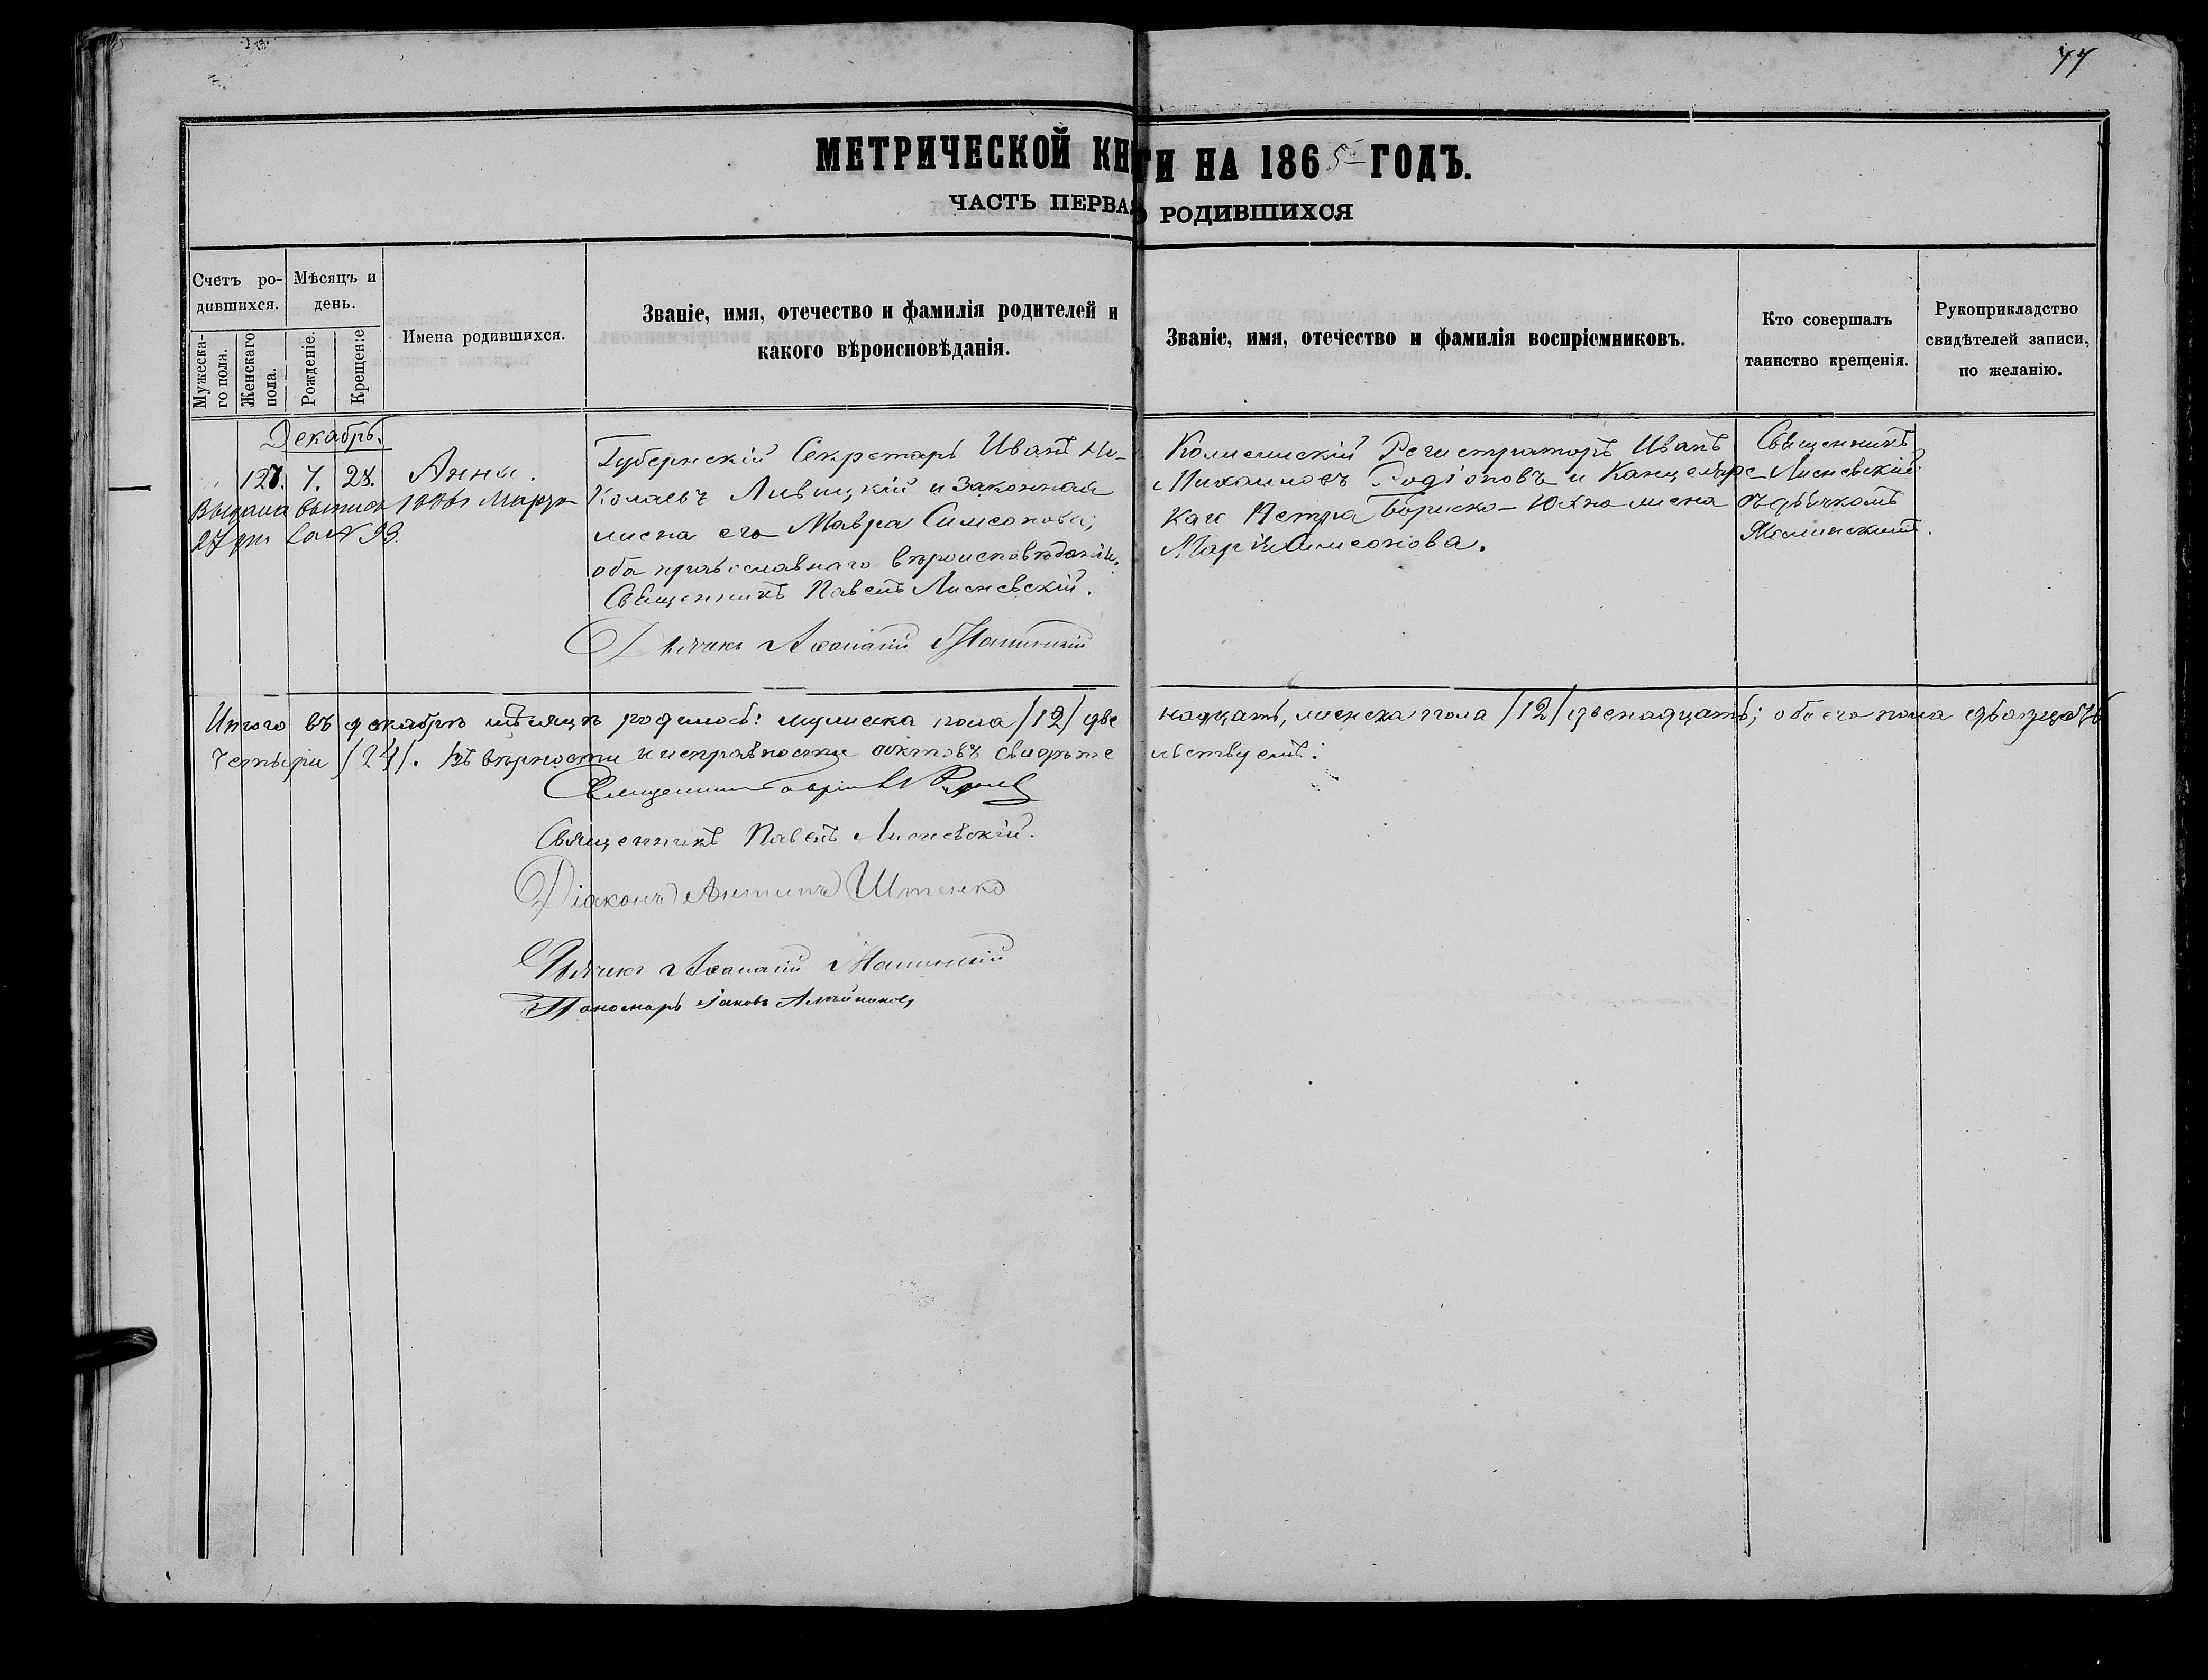 77
МЕТРИЧЕСКОЙ КНИГИ НА 1865 ГОДЪ.
ЧАСТЬ ПЕРВАЯ О РОДИВШИХСЯ
Счетъ ро-
дившихся.
Мужеска-
го пола.
Женскаго
пола.
Мѣсяцъ и
день.
Рожденіе.
Крещеніе
Имена родившихся.
Званіе, имя, отечество и фамилія родителей и
какого вѣроисповѣданія.
Званіе, имя, отечество и фамилія воспріемниковъ.
Кто совершалъ
таинство крещенія.
Рукоприкладство
свидѣтелей записи,
по желанію.
Декабрь.
127. 7. 28. Анна.
Выдана выпись Марта
27 дня за № 93.
Губернскій Секретарь Иванъ Ни-
колаевъ Ливицкій и законная
жена его Мавра Симеонова;
оба православнаго вѣроисповѣданія.
Священникъ Павелъ Лисневскій.
Дьячекъ Аѳанасій
Колежскій Регистраторъ Иванъ
Михаиловъ Родіоновъ и Канцеляре-
Петра Бориско-Юхно жена
Марія Симеонова.
Священникъ
Лисневскій
съ дьячкомъ
Итого въ декабрѣ мѣсяцѣ родилось: мужеска пола /12/ две
надцать, женска пола /12/ двенадцать; обоего пола двадцать
четыри /24/. Въ вѣрности и исправности актовъ свидѣте
льствуемъ:
Священникъ
Священникъ Павелъ Лисневскій.
Діаконъ Антипъ Штенко
Дьячекъ Аѳанасій
Пономарь Іаковъ